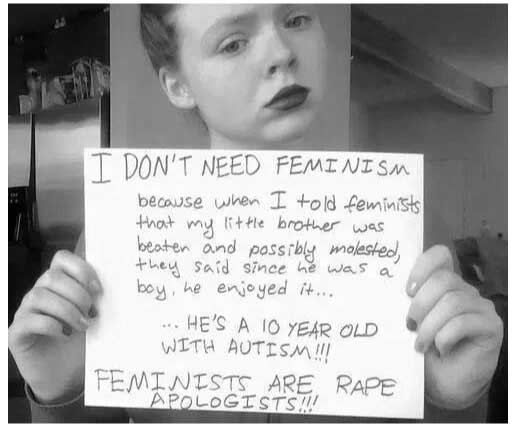 I DON'T NEED FEMINISM
because when I told feminists
that my little brother was
beaten and possibly molested,
they said since he was a
boy, he enjoyed it...
... HE'S A 10 YEAR OLD
WITH AUTISM!!!
FEMINISTS ARE RAPE
APOLOGISTS!!!